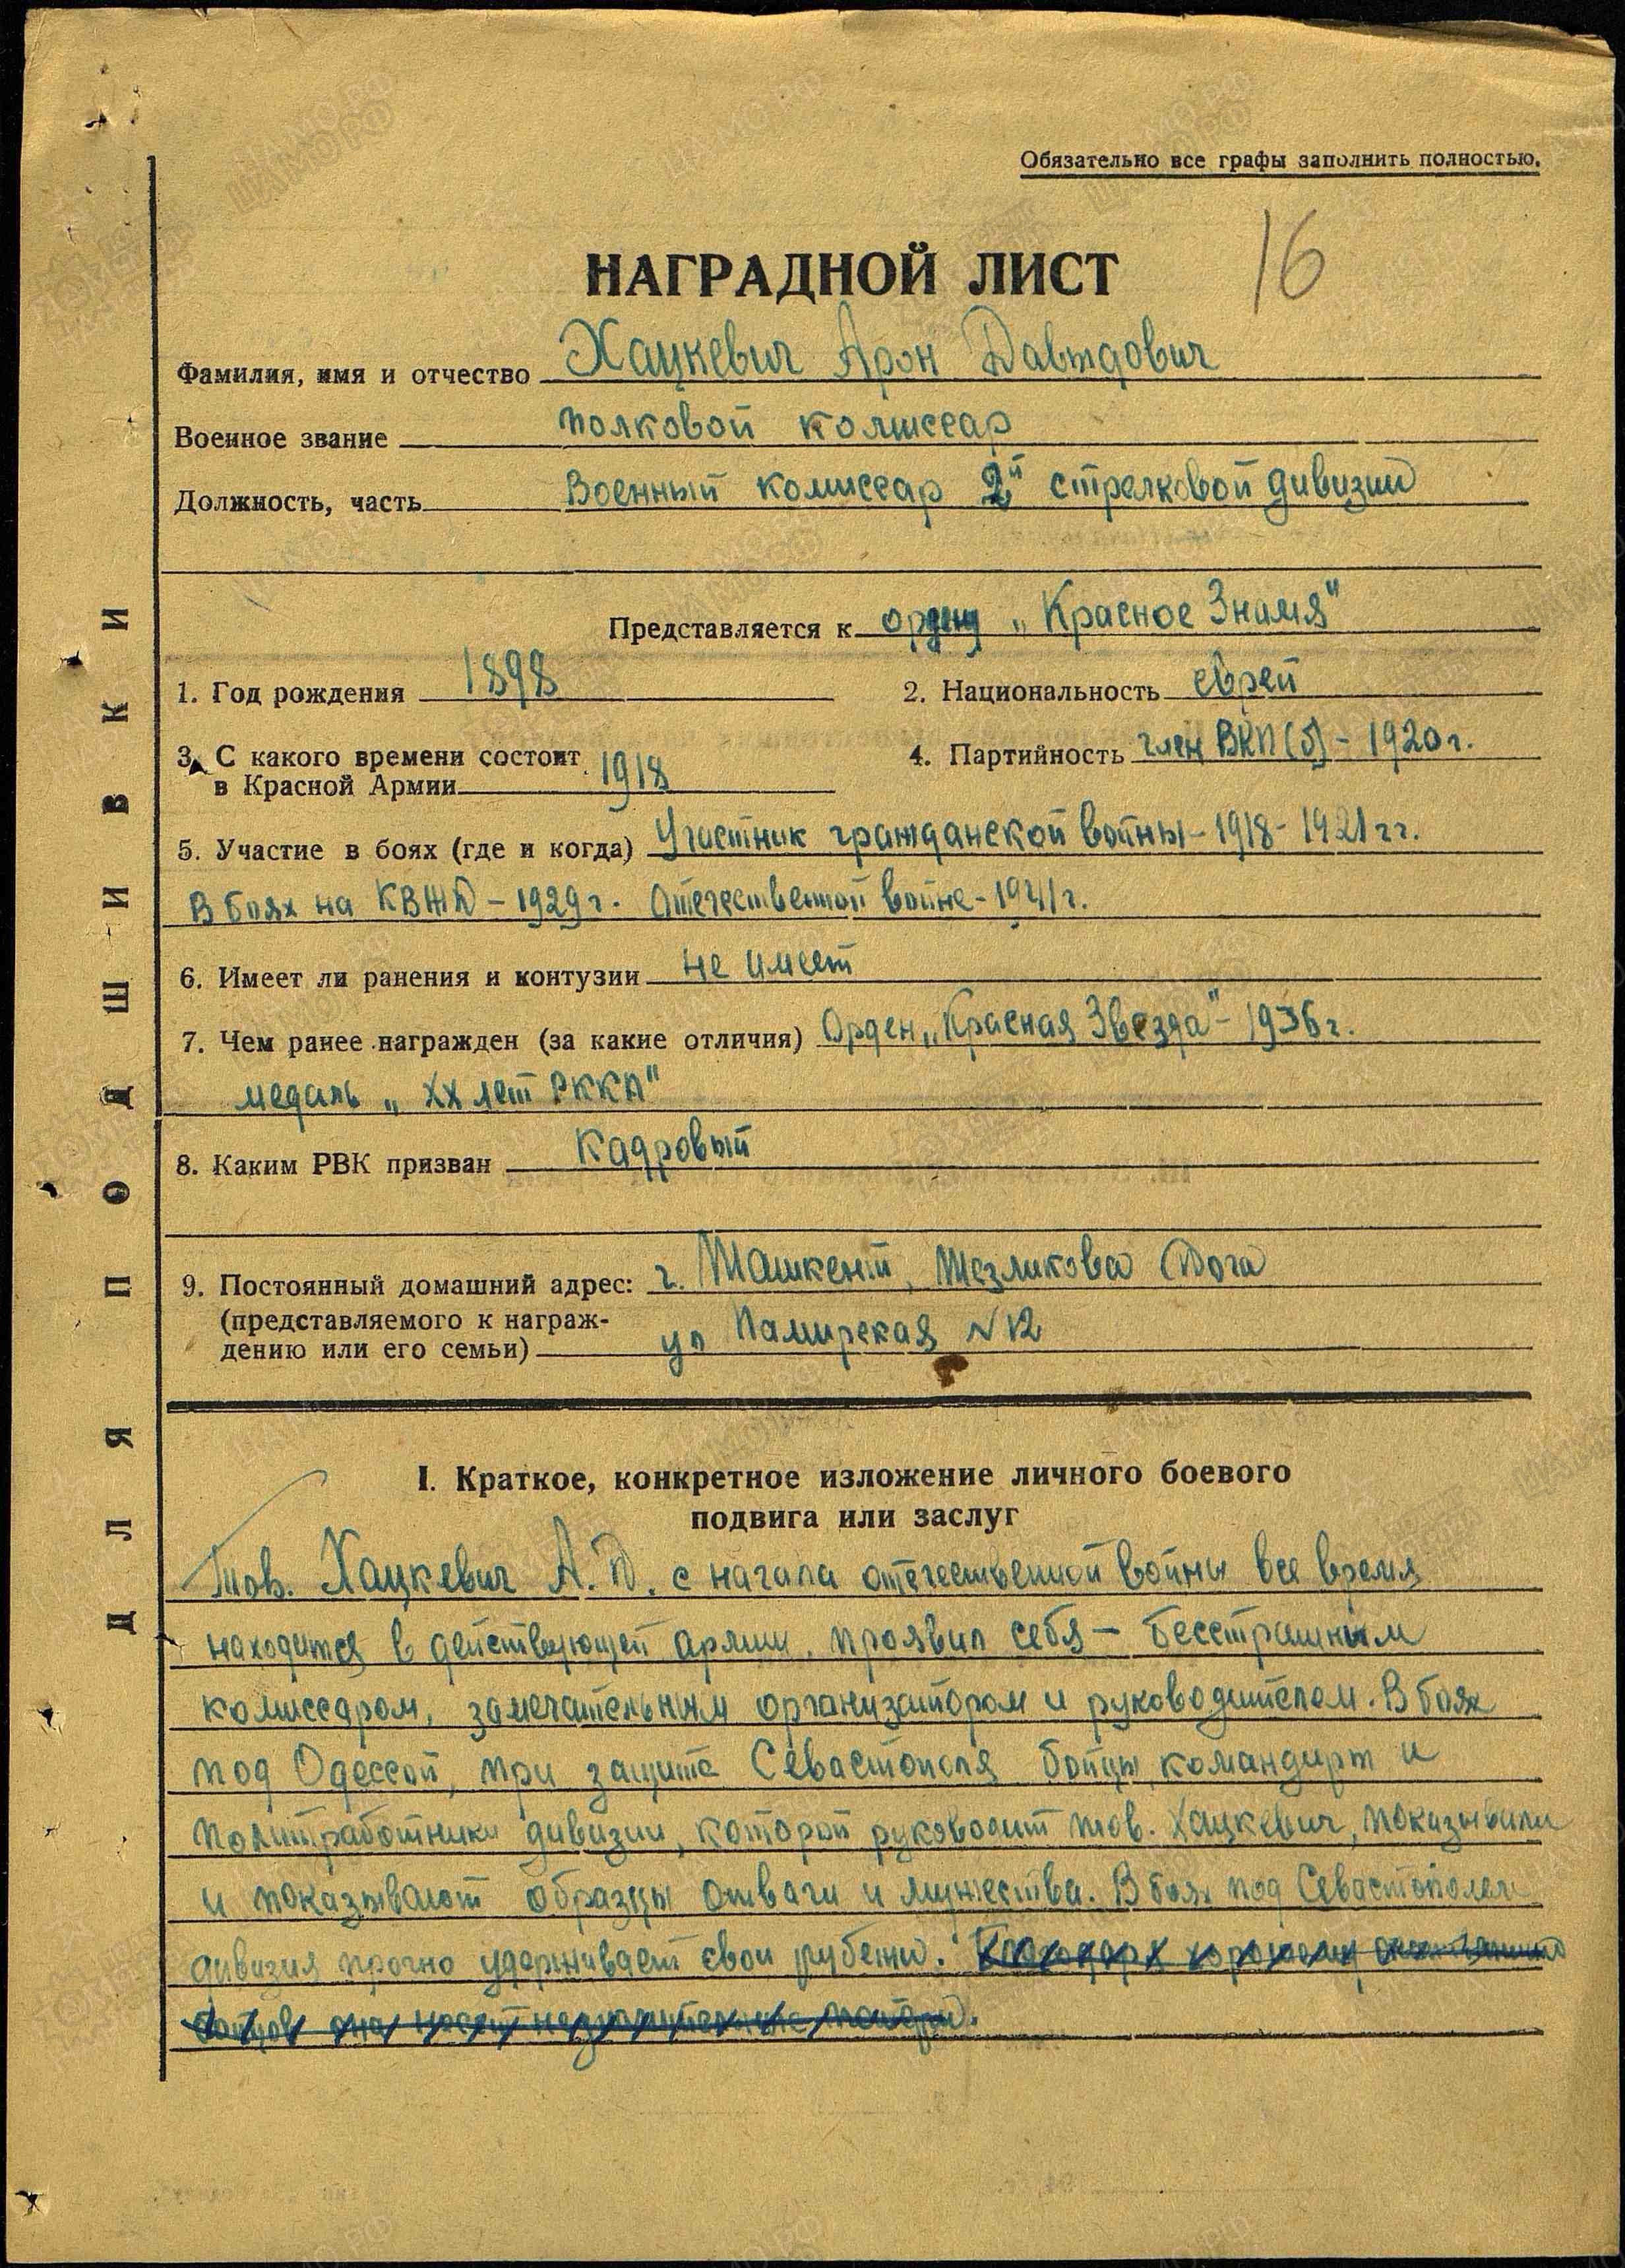 Обязательно все графы заполнить полностью.
16
НАГРАДНОЙ ЛИСТ
Фамилия, имя и отчество Хацкевич Арон Давыдович
Военное звание полковой комиссар
Должность, часть Военный комиссар 2й стрелковой дивизии
Представляется к ордену „Красное Знамя"
1. Год рождения 1898
2. Национальность еврей
3. С какого времени состоит
в Красной Армии 1918
4. Партийность член ВКП(б) – 1920 г.
5. Участие в боях (где и когда) Участник гражданской войны – 1918 – 1921 гг.
В боях на КВЖД – 1929 г. Отечественной войне – 1941 г.
6. Имеет ли ранения и контузии не имеет
7. Чем ранее награжден (за какие отличия) Орден „Красная Звезда" – 1936 г.
медаль „ХХ лет РККА"
8. Каким РВК призван Кадровый
9. Постоянный домашний адрес: г. Ташкент,
(представляемого к награж-
дению или его семьи) ул Памирская N 12
I. Краткое, конкретное изложение личного боевого
подвига или заслуг
Тов. Хацкевич А. Д. с начала отечественной войны все время
находится в действующей армии, проявил себя – бесстрашным
комиссаром, замечательным организатором и руководителем. В боях
под Одессой, при защите Севастополя бойцы, командиры и
политработники дивизии, которой руководит тов. Хацкевич, показывали
и показывают образцы отваги и мужества. В боях под Севастополем
дивизия прочно удерживает свои рубежи.
ДЛЯ ПОДШИВКИ